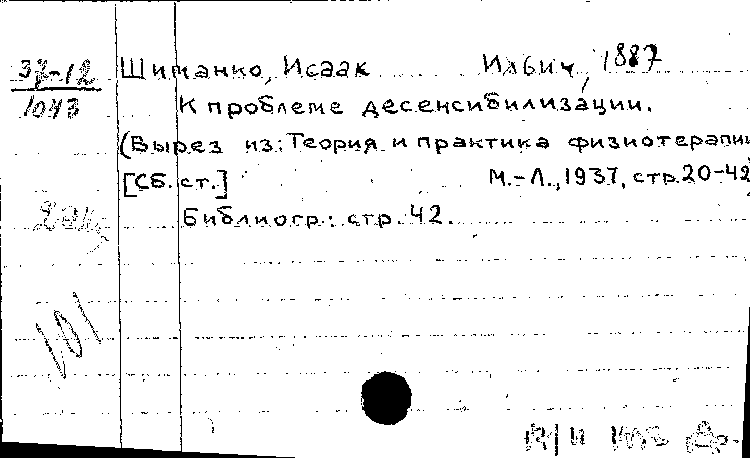 37-12
1043
Шиманко, Исаак Ильич, 1887
К проблеме десенсибилизации.
(Вырез из: Теория и практика физиотерапии
[Сб. ст.] М.-Л., 1937, стр. 20-42
Библиогр: стр. 42.
101